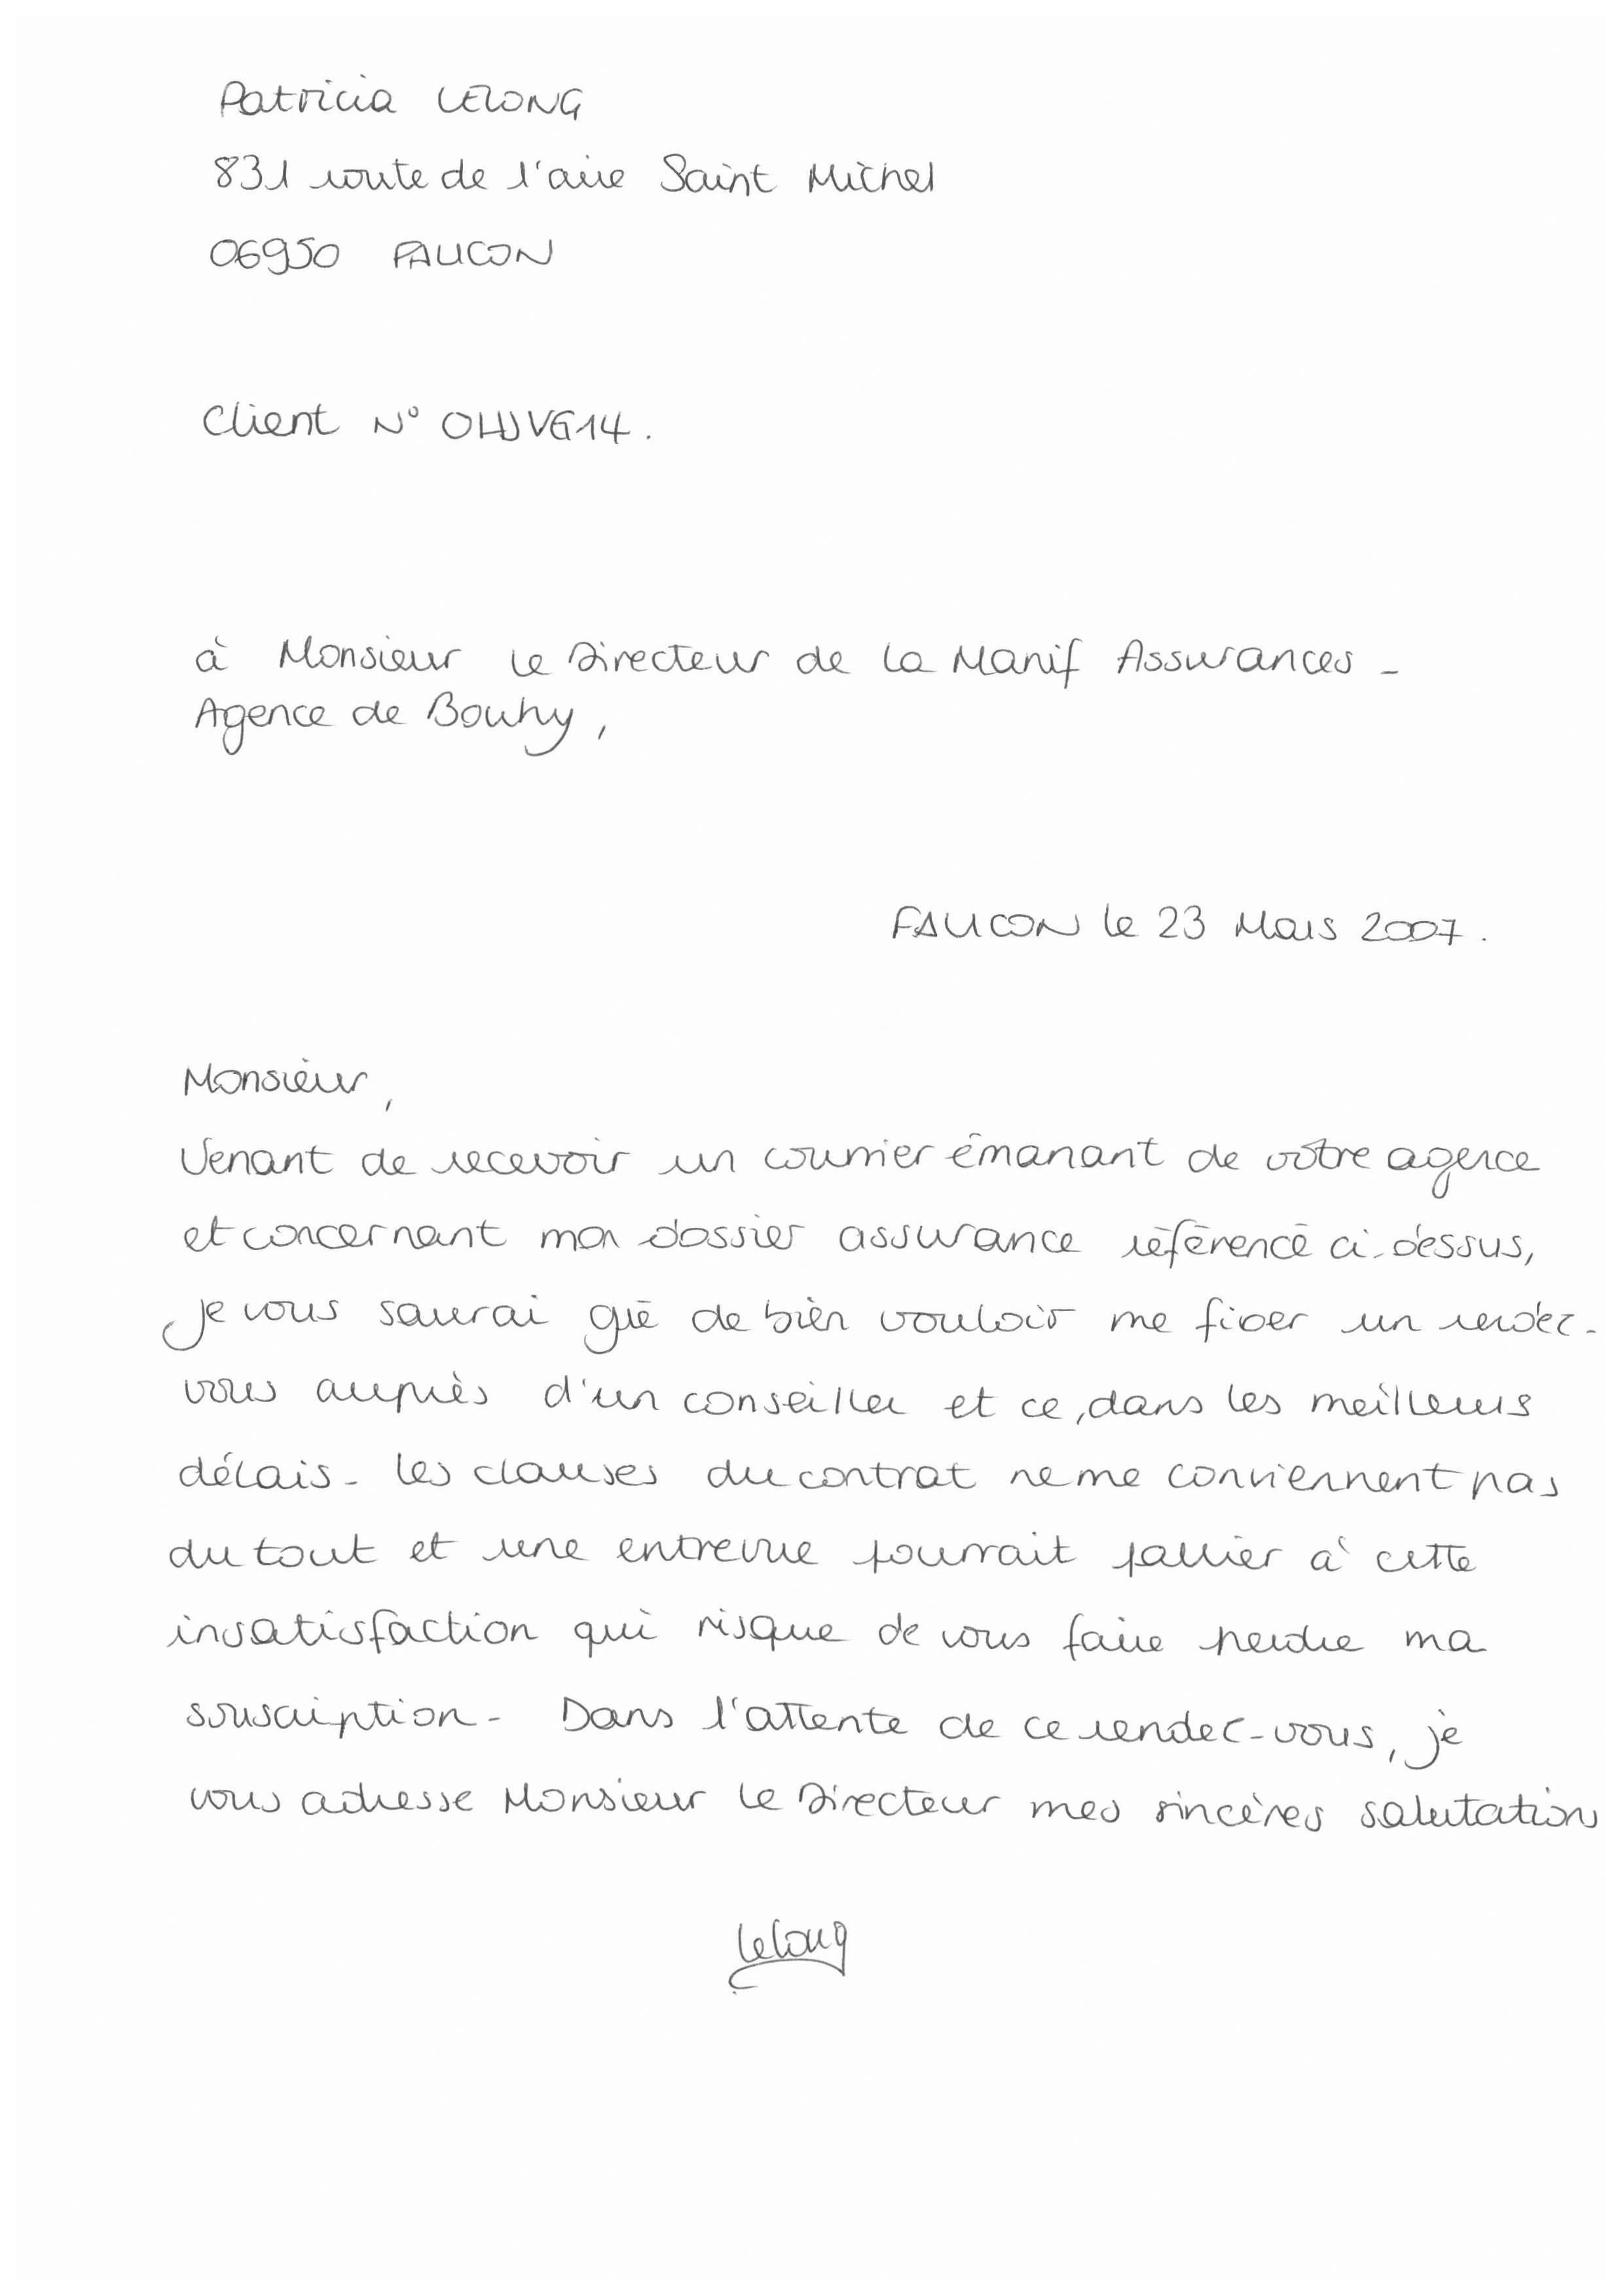 Patricia LELONG
831 route de l'aire Saint Michel
06950 FAUCON
Client N° OHJVG14.
à Monsieur le Directeur de la Manif Assurances -
Agence de Bouhy,
FAUCON le 23 Mars 2007.
Monsieur,
Venant de recevoir un courrier émanant de votre agence
et concernant mon dossier assurance référencé ci-dessus,
je vous saurai gré de bien vouloir me fixer un rendez-
vous auprès d'un conseiller et ce, dans les meilleurs
délais - les clauses du contrat ne me conviennent pas
du tout et une entrevue pourrait pallier à cette
insatisfaction qui risque de vous faire perdre ma
souscription - Dans l'attente de ce rendez-vous, je
vous adresse Monsieur le Directeur mes sincères salutations
Lelong